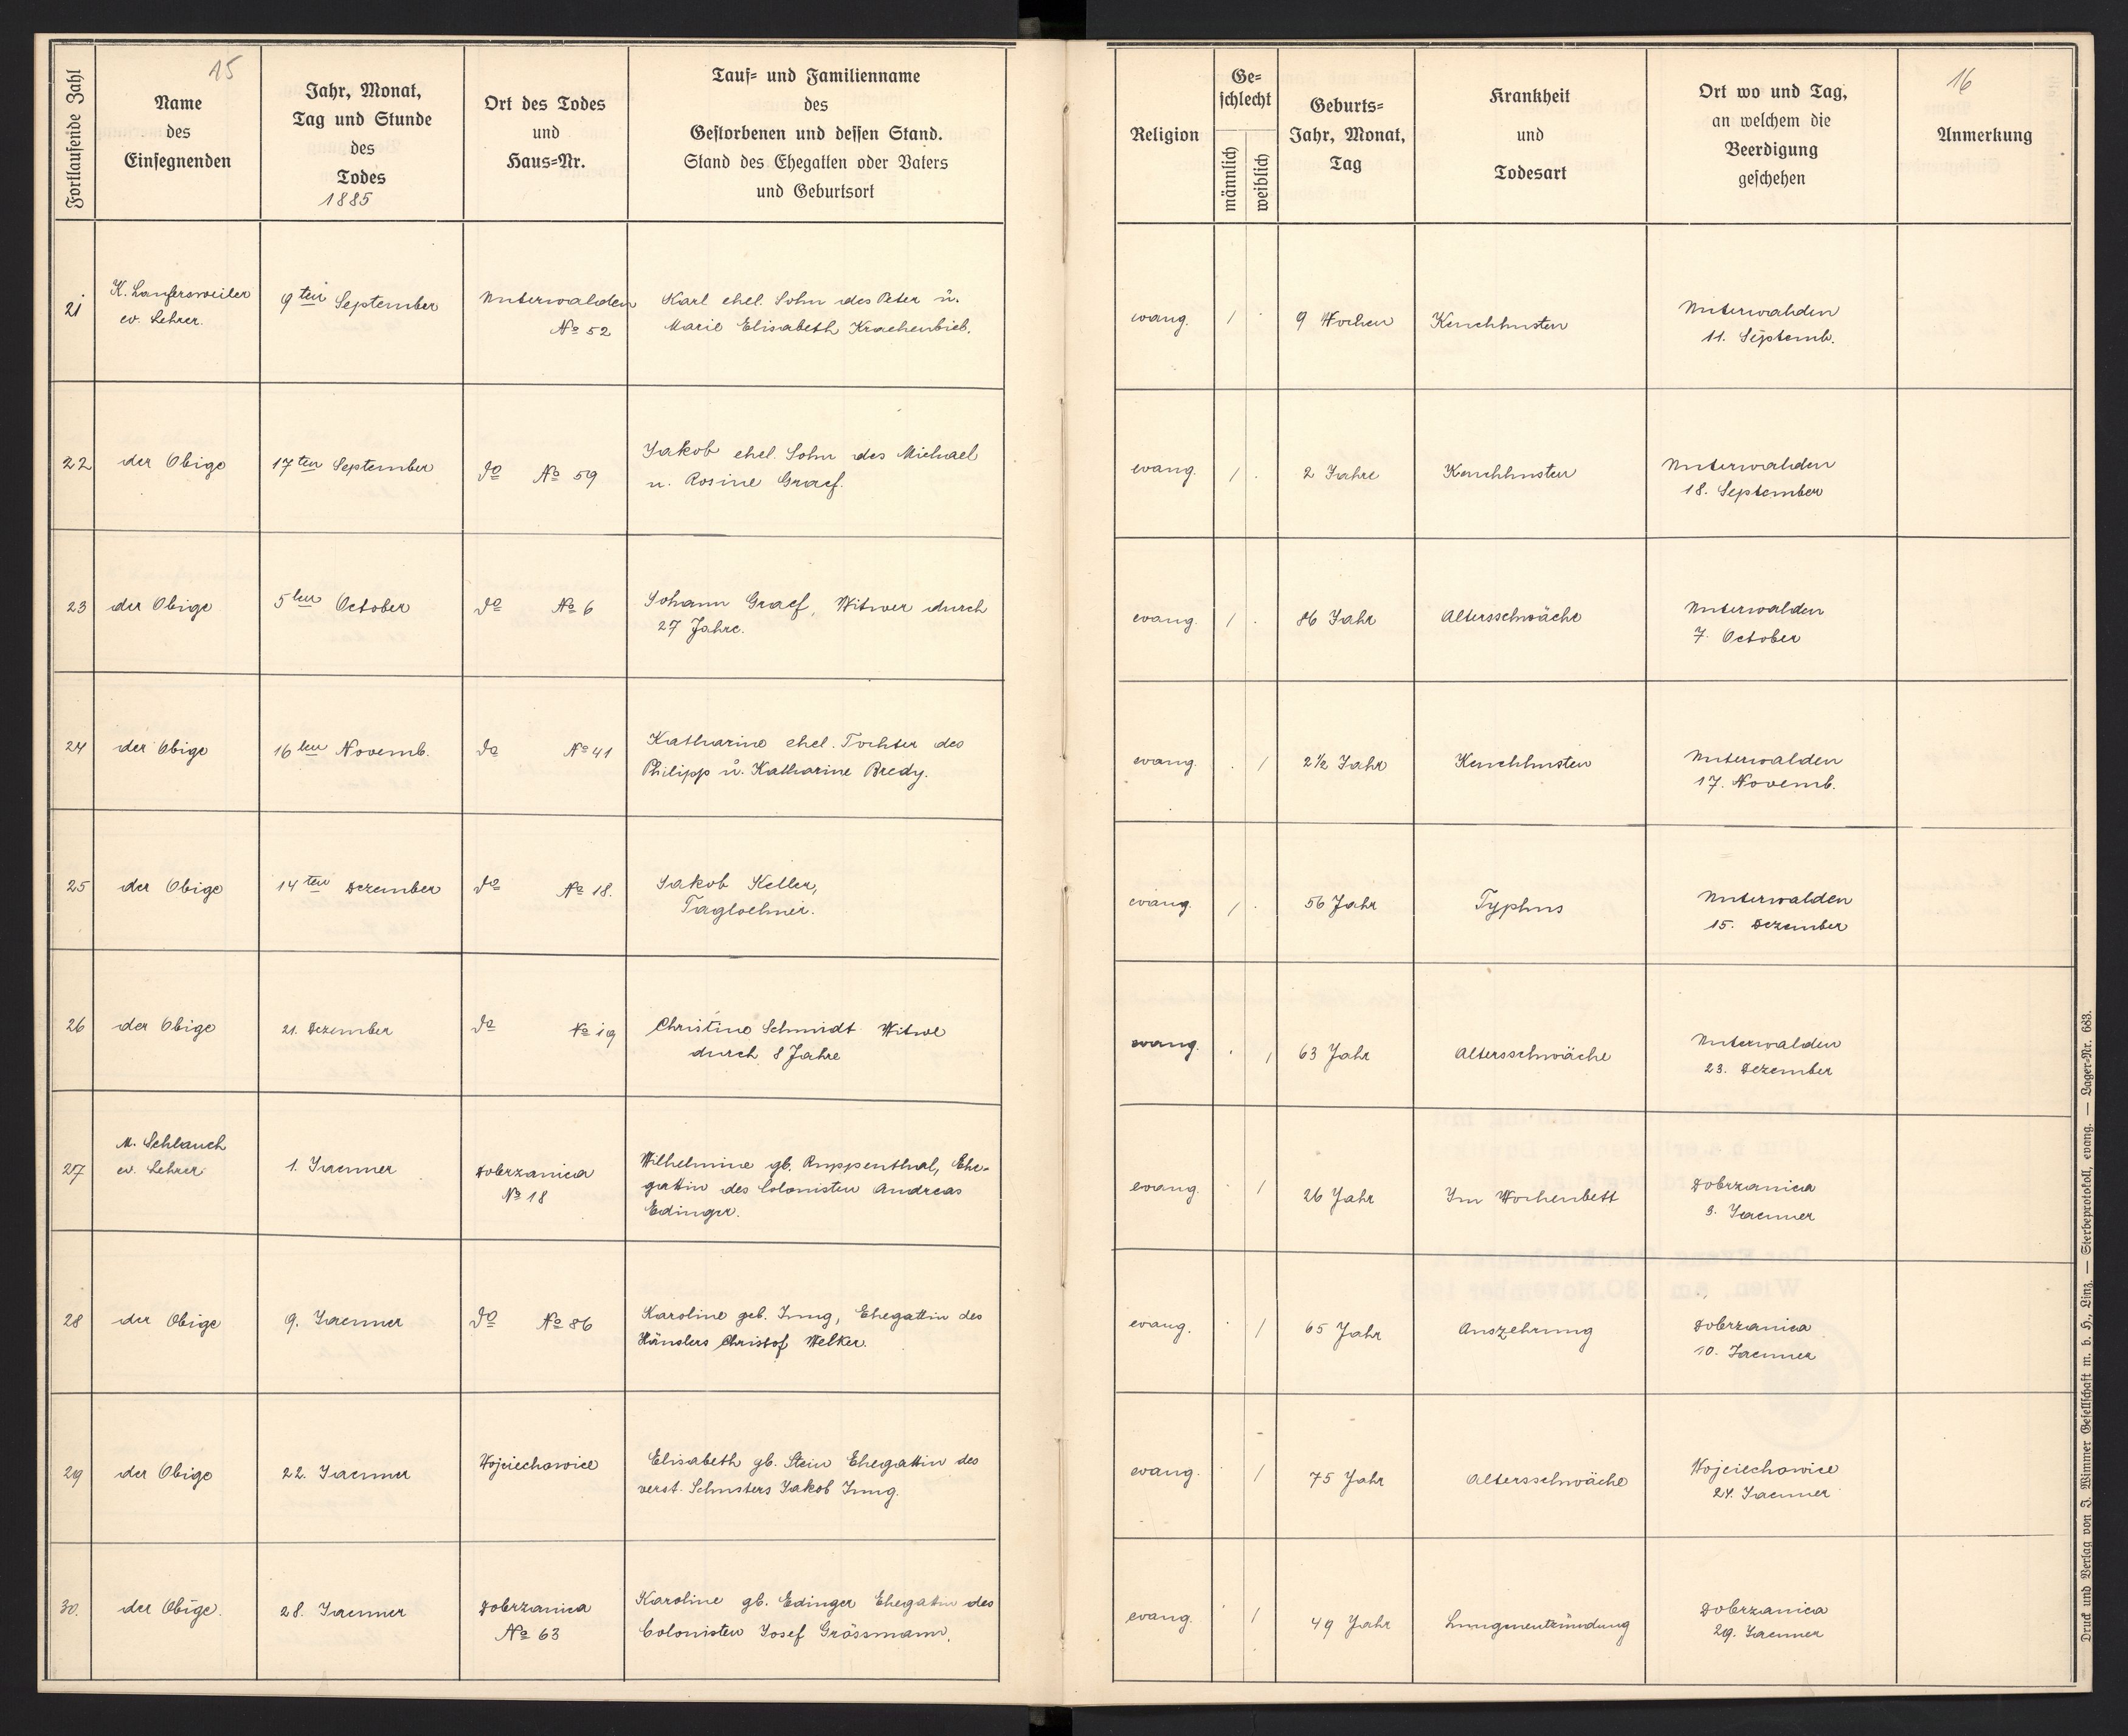 15
Fortlaufende Zahl
Name
des
Einsegnenden
Jahr, Monat,
Tag und Stunde
des
Todes
1885
Ort des Todes
und
Haus-Nr.
Tauf- und Familienname
des
Gestorbenen und dessen Stand.
Stand des Ehegatten oder Vaters
und Geburtsort
Religion
Ge-
schlecht
männlich
weiblich
Geburts-
Jahr, Monat,
Tag
Krankheit
und
Todesart
Ort wo und Tag,
an welchem die
Beerdigung
geschehen
16
Anmerkung
21
K. Laufersweiler
ev. Lehrer.
9ten September
Unterwalden
No 52
Karl ehel. Sohn des Peter u.
Marie Elisabeth Krachenbiel.
evang.
/ .
9 Wochen
Keuchhusten
Unterwalden
11. Septemb.
22
der Obige
17ten September
do No 59
Jakob ehel. Sohn des Michael
u. Rosine Graef.
evang.
/ .
2 Jahre
Keuchhusten
Unterwalden
18. September
23
der Obige
5ten October
do No 6
Johann Graef, Witwer durch
27 Jahre.
evang.
/ .
86 Jahr
Altersschwäche
Unterwalden
7. October
24
der Obige
16ten Novemb.
do No 41
Katharine ehel. Tochter des
Philipp u. Katharine Bredy.
evang.
. /
2½ Jahr
Keuchhusten
Unterwalden
17. Novemb.
25
der Obige
14ten Dezember
do No 18.
Jakob Keller,
Tagloehner.
evang.
/ .
56 Jahr
Typhus
Unterwalden
15. Dezember
26
der Obige
21. Dezember
do No 19
Christine Schmidt Witwe
durch 8 Jahre
evang.
. /
63 Jahr
Altersschwäche
Unterwalden
23. Dezember
27
M. Schlauch
ev. Lehrer
1. Jaenner
Dobrzanica
No 18
Wilhelmine gb. Ruppenthal, Ehe-
gattin des Colonisten Andreas
Edinger.
evang.
. /
26 Jahr
Im Wochenbett
Dobrzanica
3. Jaenner
28
der Obige
9. Jaenner
do No 86
Karoline geb. Jung, Ehegattin des
Häuslers Christof Welker.
evang.
. /
65 Jahr
Auszehrung
Dobrzanica
10. Jaenner
29
der Obige
22. Jaenner
Wojciechowice
Elisabeth gb. Stein Ehegattin des
verst. Schusters Jakob Jung.
evang.
. /
75 Jahr
Altersschwäche
Wojciechowice
24. Jaenner
30.
der Obige.
28. Jaenner
Dobrzanica
No 63
Karoline gb. Edinger Ehegattin des
Colonisten Josef Grössmann.
evang.
. /
49 Jahr
Lungenentzündung
Dobrzanica
29. Jaenner
Druck und Verlag von J. Wimmer Gesellschaft m. b. H., Linz. — Sterbeprotokoll, evang. — Lager-Nr. 683.